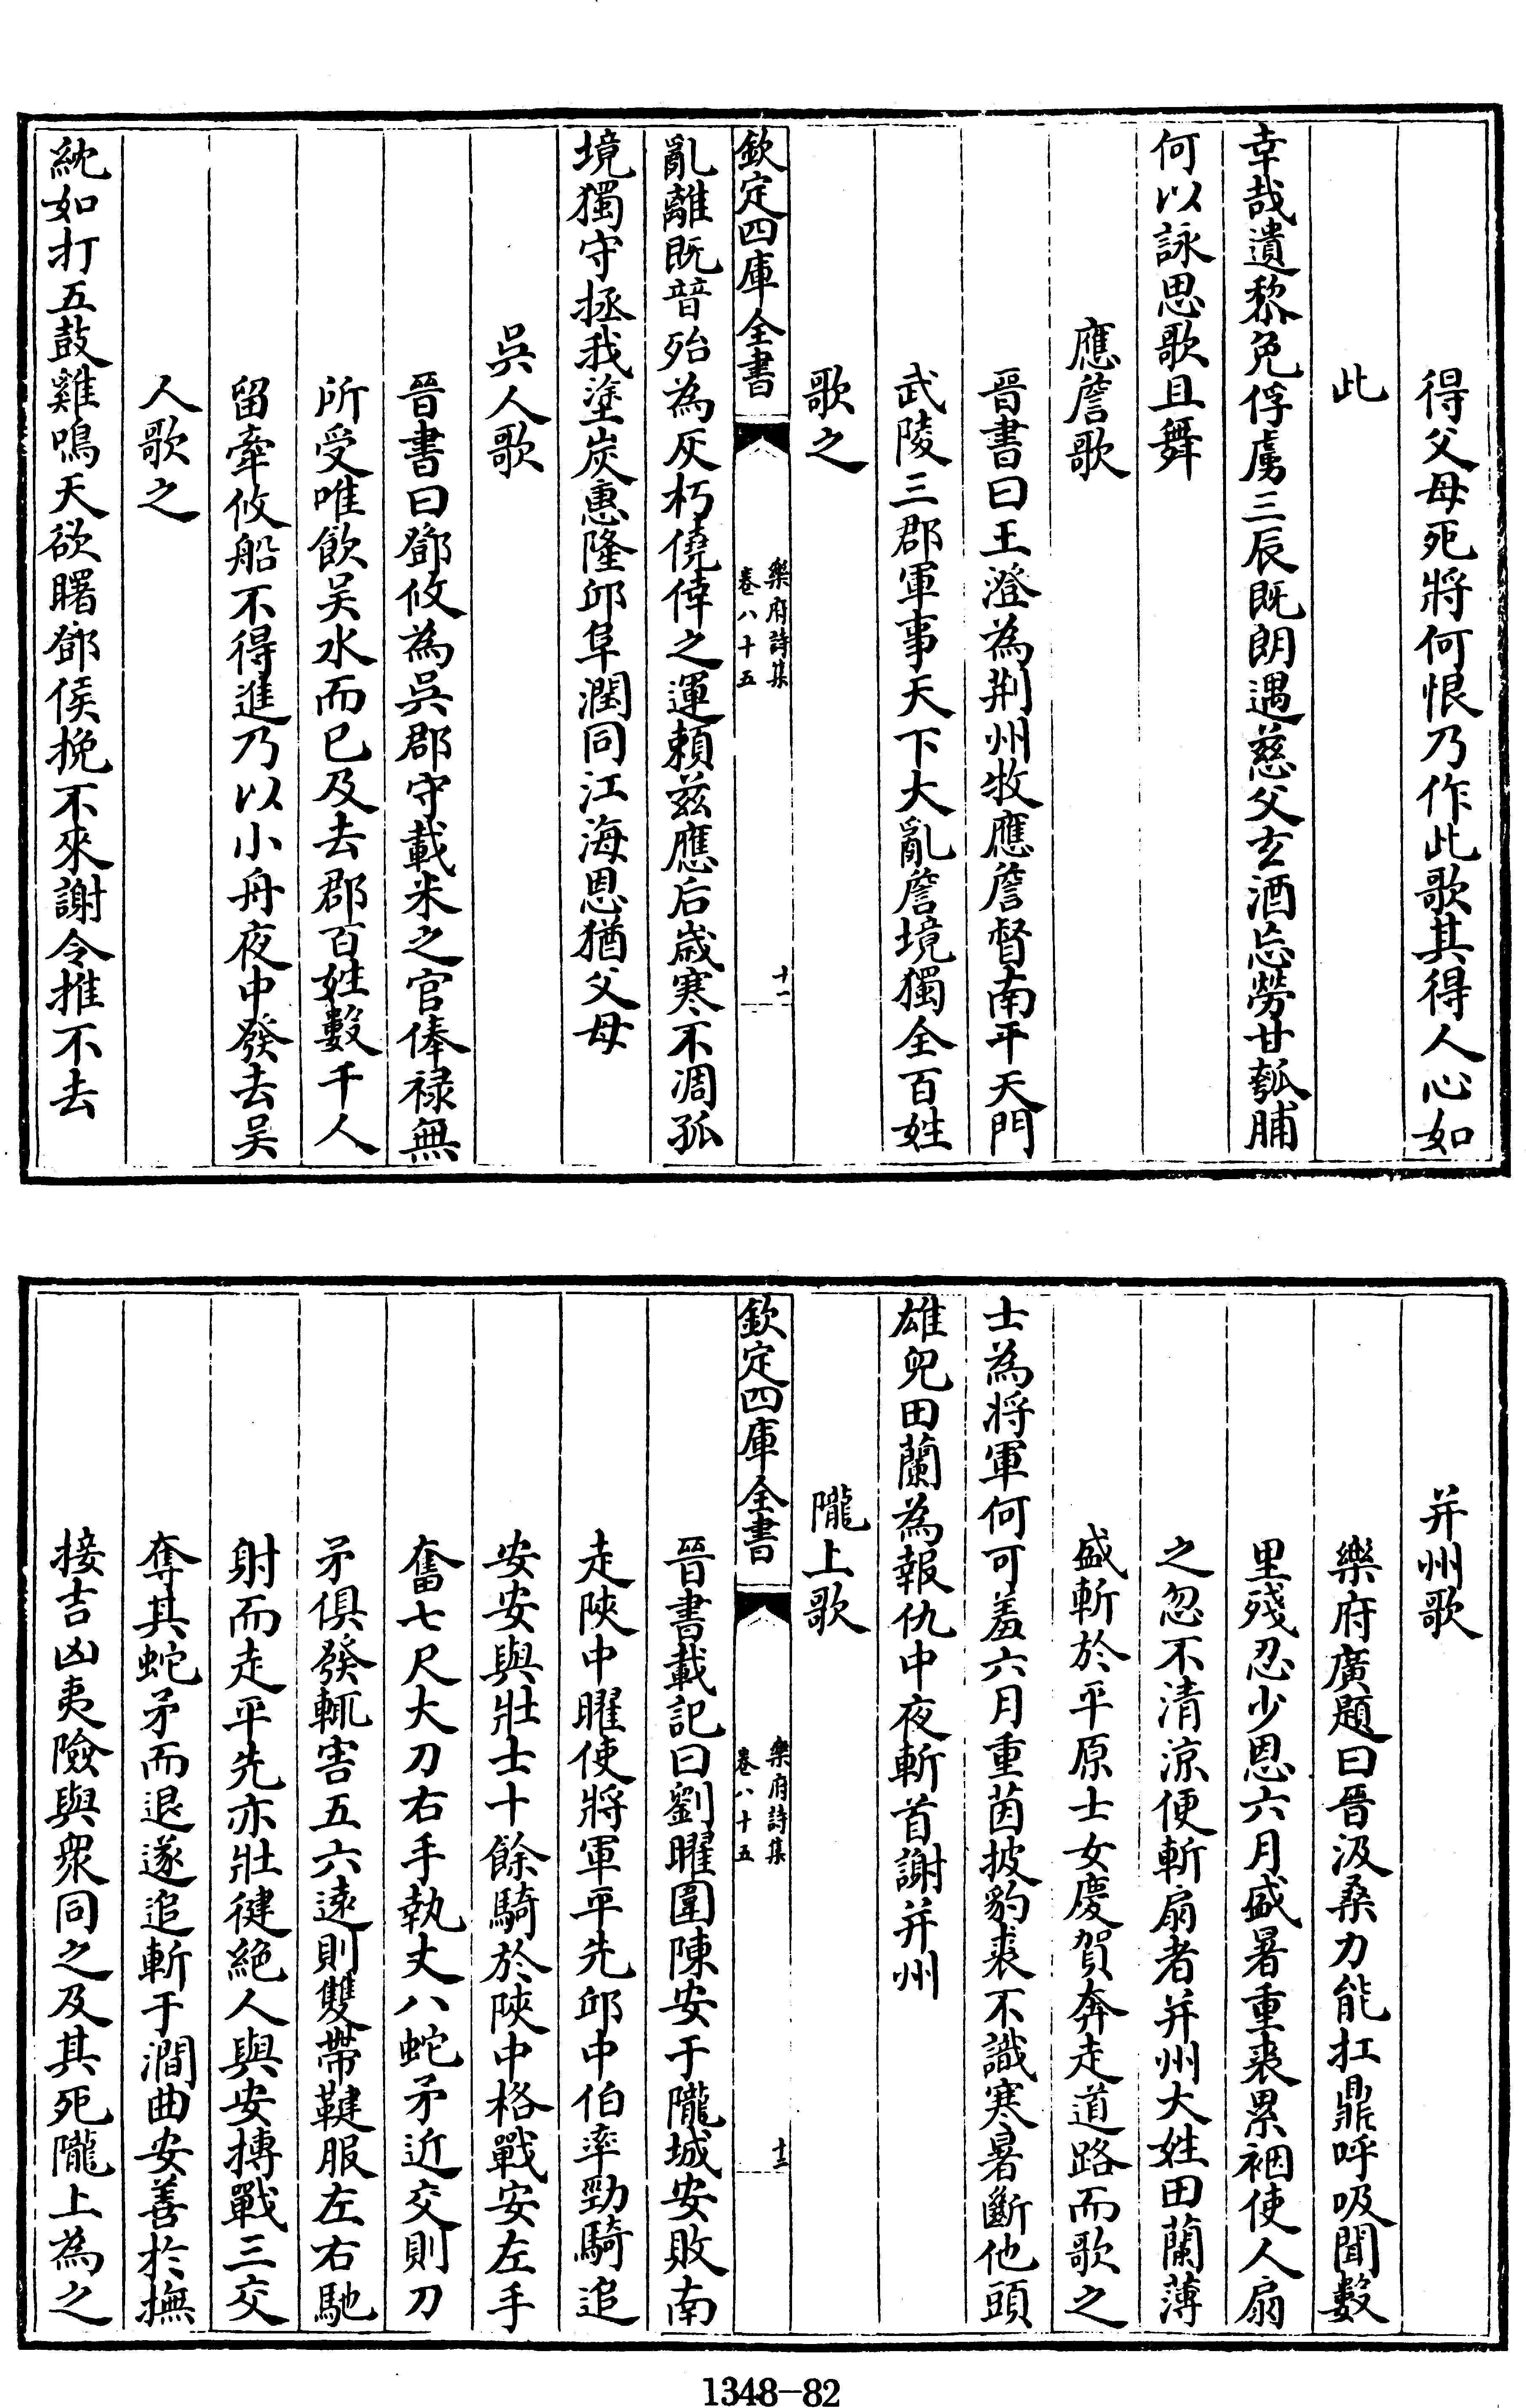 得父母死將何恨乃作此歌其得人心如
此
幸哉遺黎免俘虜三辰既朗遇慈父玄酒忘勞甘瓠脯
何以詠思歌且舞
應詹歌
晉書曰王澄為荆州牧應詹督南平天門
武陵三郡軍事天下大亂詹境獨全百姓
歌之
欽定四庫全書
樂府詩集
卷八十五
十一
亂離既普殆為灰朽僥倖之運頼兹應后歲寒不凋孤
境獨守拯我塗炭惠隆邱阜潤同江海恩猶父母
吳人歌
晉書曰鄧攸為吳郡守載米之官俸禄無
所受唯飲吴水而已及去郡百姓數千人
留牽攸船不得進乃以小舟夜中發去吴
人歌之
紞如打五鼓雞鳴天欲曙鄧侯挽不來謝令推不去
并州歌
樂府廣題曰晉汲桑力能扛鼎呼吸聞數
里殘忍少恩六月盛暑重裘累裀使人扇
之忽不清涼便斬扇者并州大姓田蘭薄
盛斬於平原士女慶賀奔走道路而歌之
士為將軍何可羞六月重茵披豹裘不識寒暑斷他頭
雄兒田蘭為報仇中夜斬首謝并州
隴上歌
欽定四庫全書
樂府詩集
卷八十五
十二
晉書載記曰劉曜圍陳安于隴城安敗南
走陜中曜使將軍平先邱中伯率勁騎追
安安與壯士十餘騎於陜中格戰安左手
奮七尺大刀右手執丈八蛇矛近交則刀
矛俱發輒害五六遠則雙帶鞬服左右馳
射而走平先亦壯健絶人與安搏戰三交
奪其蛇矛而退遂追斬于澗曲安善於撫
接吉凶夷險與衆同之及其死隴上為之
1348-82